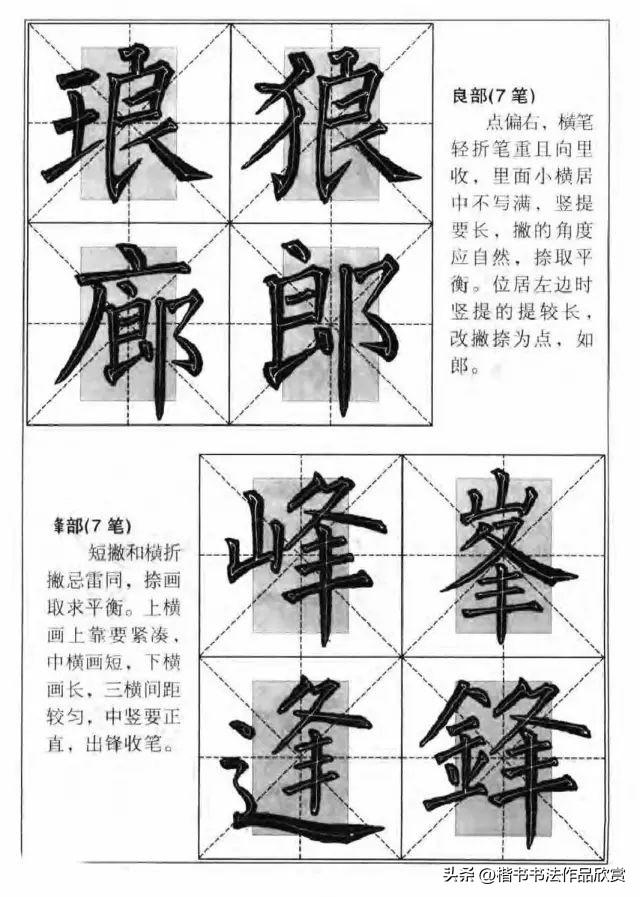 琅狼
廊郎
良部(7笔)
点偏右，横笔
轻折笔重且向里
收，里面小横居
中不写满，竖提
要长，撇的角度
应自然，捺取平
衡。位居左边时
竖提的提较长，
改撇捺为点，如
郎。
夆部(7笔)
短撇和横折
撇忌雷同，捺画
取求平衡。上横
画上靠要紧凑，
中横画短，下横
画长，三横间距
较匀，中竖要正
直，出锋收笔。
峰峯
逢鋒
头条 @楷书书法作品欣赏